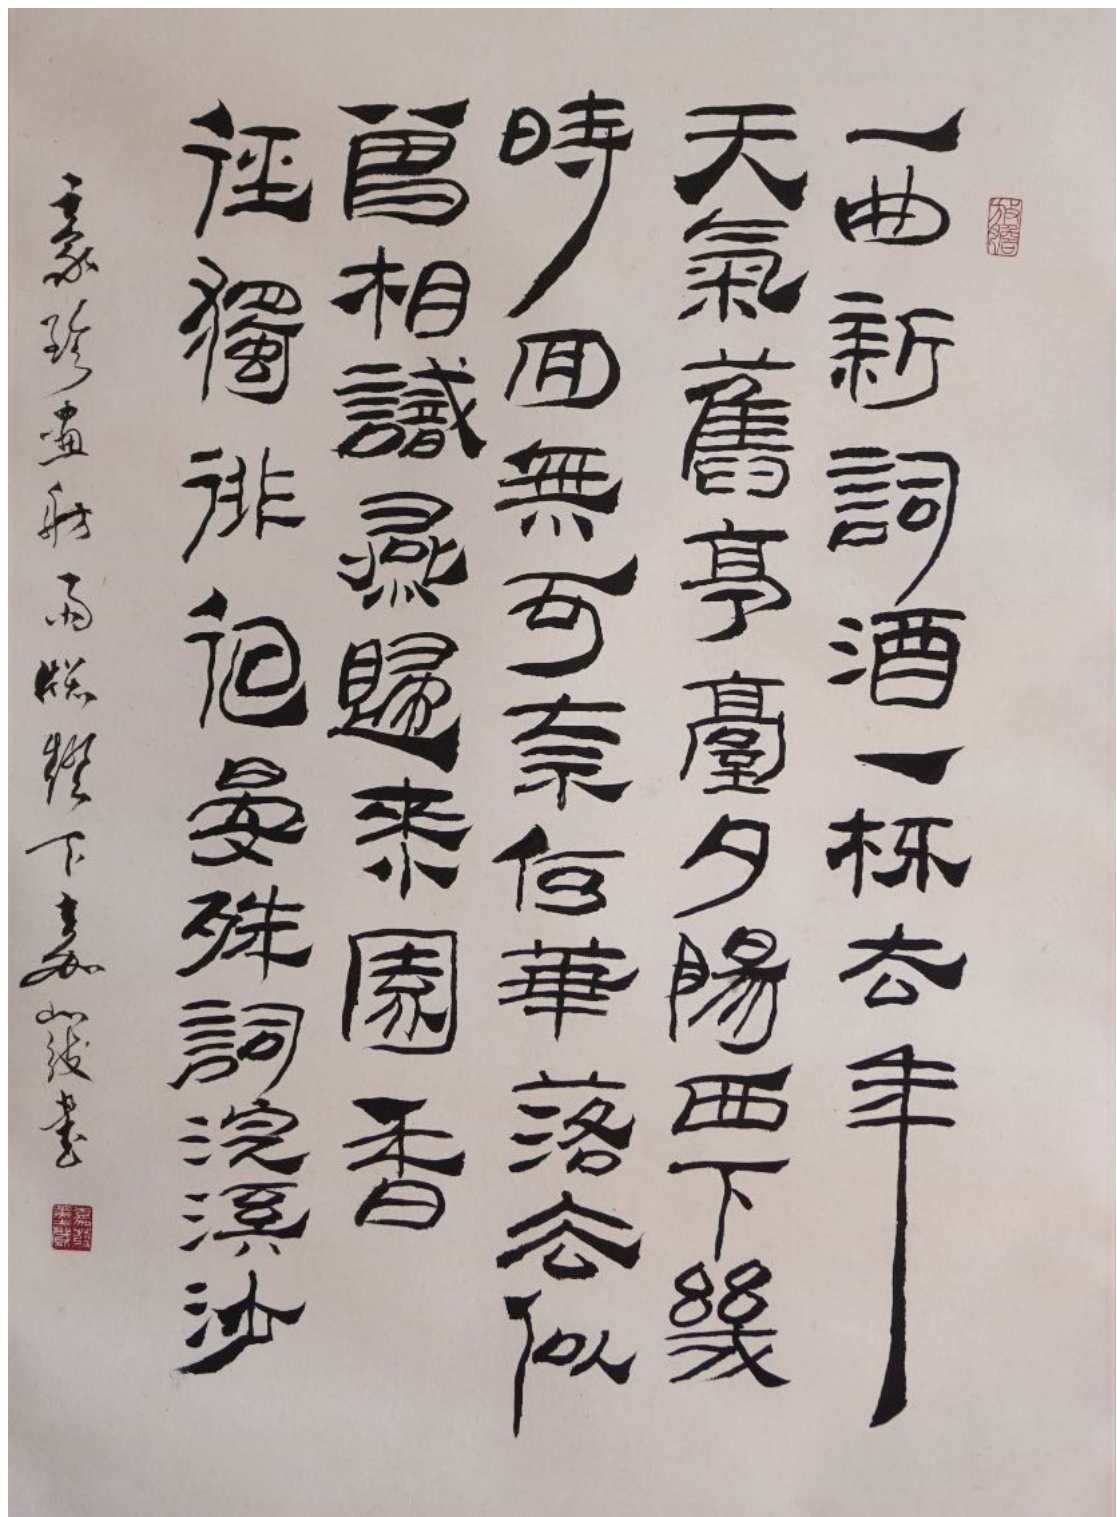 放膽
一曲新詞酒一杯去年
天氣舊亭臺夕陽西下幾
時回無可奈何華落去似
曾相識燕歸來園香
徑獨徘徊晏殊詞浣溪沙
珍畫舫雨牕下嘉發書